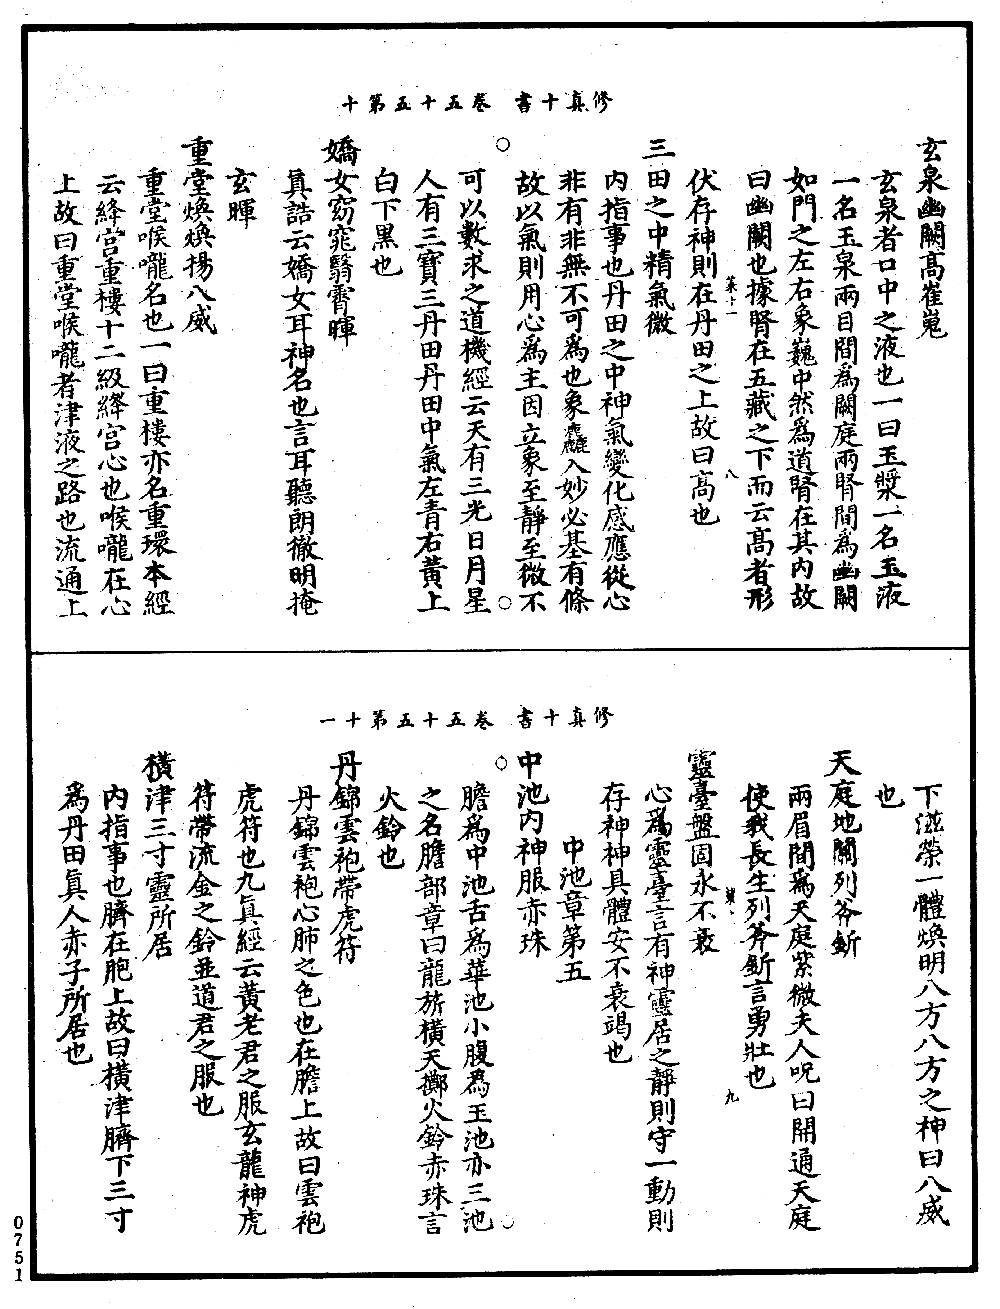 修真十書　卷五十五第十
玄泉幽闕高崔嵬
玄泉者口中之液也一曰玉漿一名玉液
一名玉泉兩目間爲闕庭兩腎間爲幽闕
如門之左右象巍中然爲道腎在其內故
曰幽闕也據腎在五藏之下而云高者形
菜十一　八
伏存神則在丹田之上故曰高也
三田之中精氣微
內指事也丹田之中神氣變化感應從心
非有非無不可爲也象麤入妙必基有條
故以氣則用心爲主因立象至靜至微不
可以數求之道機經云天有三光日月星
人有三寶三丹田丹田中氣左青右黃上
白下黑也
嬌女窈窕翳霄暉
眞誥云嬌女耳神名也言耳聽朗徹明掩
玄暉
重堂煥煥揚八威
重堂喉嚨名也一曰重樓亦名重環本經
云絳宮重樓十二級絳宮心也喉嚨在心
上故曰重堂喉嚨者津液之路也流通上
修真十書　卷五十五第十一
下滋榮一體煥明八方八方之神曰八威
也
天庭地關列斧斤
兩眉間爲天庭紫微夫人呪曰開通天庭
使我長生列斧斤言勇壯也
九
靈臺盤固永不衰
心爲靈臺言有神靈居之靜則守一動則
存神神具體安不衰竭也
中池章第五
中池內神服赤珠
膽爲中池舌爲華池小腹爲玉池亦三池
之名膽部章曰龍旂橫天擲火鈴赤珠言
火鈴也
丹錦雲袍帶虎符
丹錦雲袍心肺之色也在膽上故曰雲袍
虎符也九眞經云黃老君之服玄龍神虎
符帶流金之鈴並道君之服也
橫津三寸靈所居
內指事也臍在胞上故曰橫津臍下三寸
爲丹田眞人赤子所居也
0751